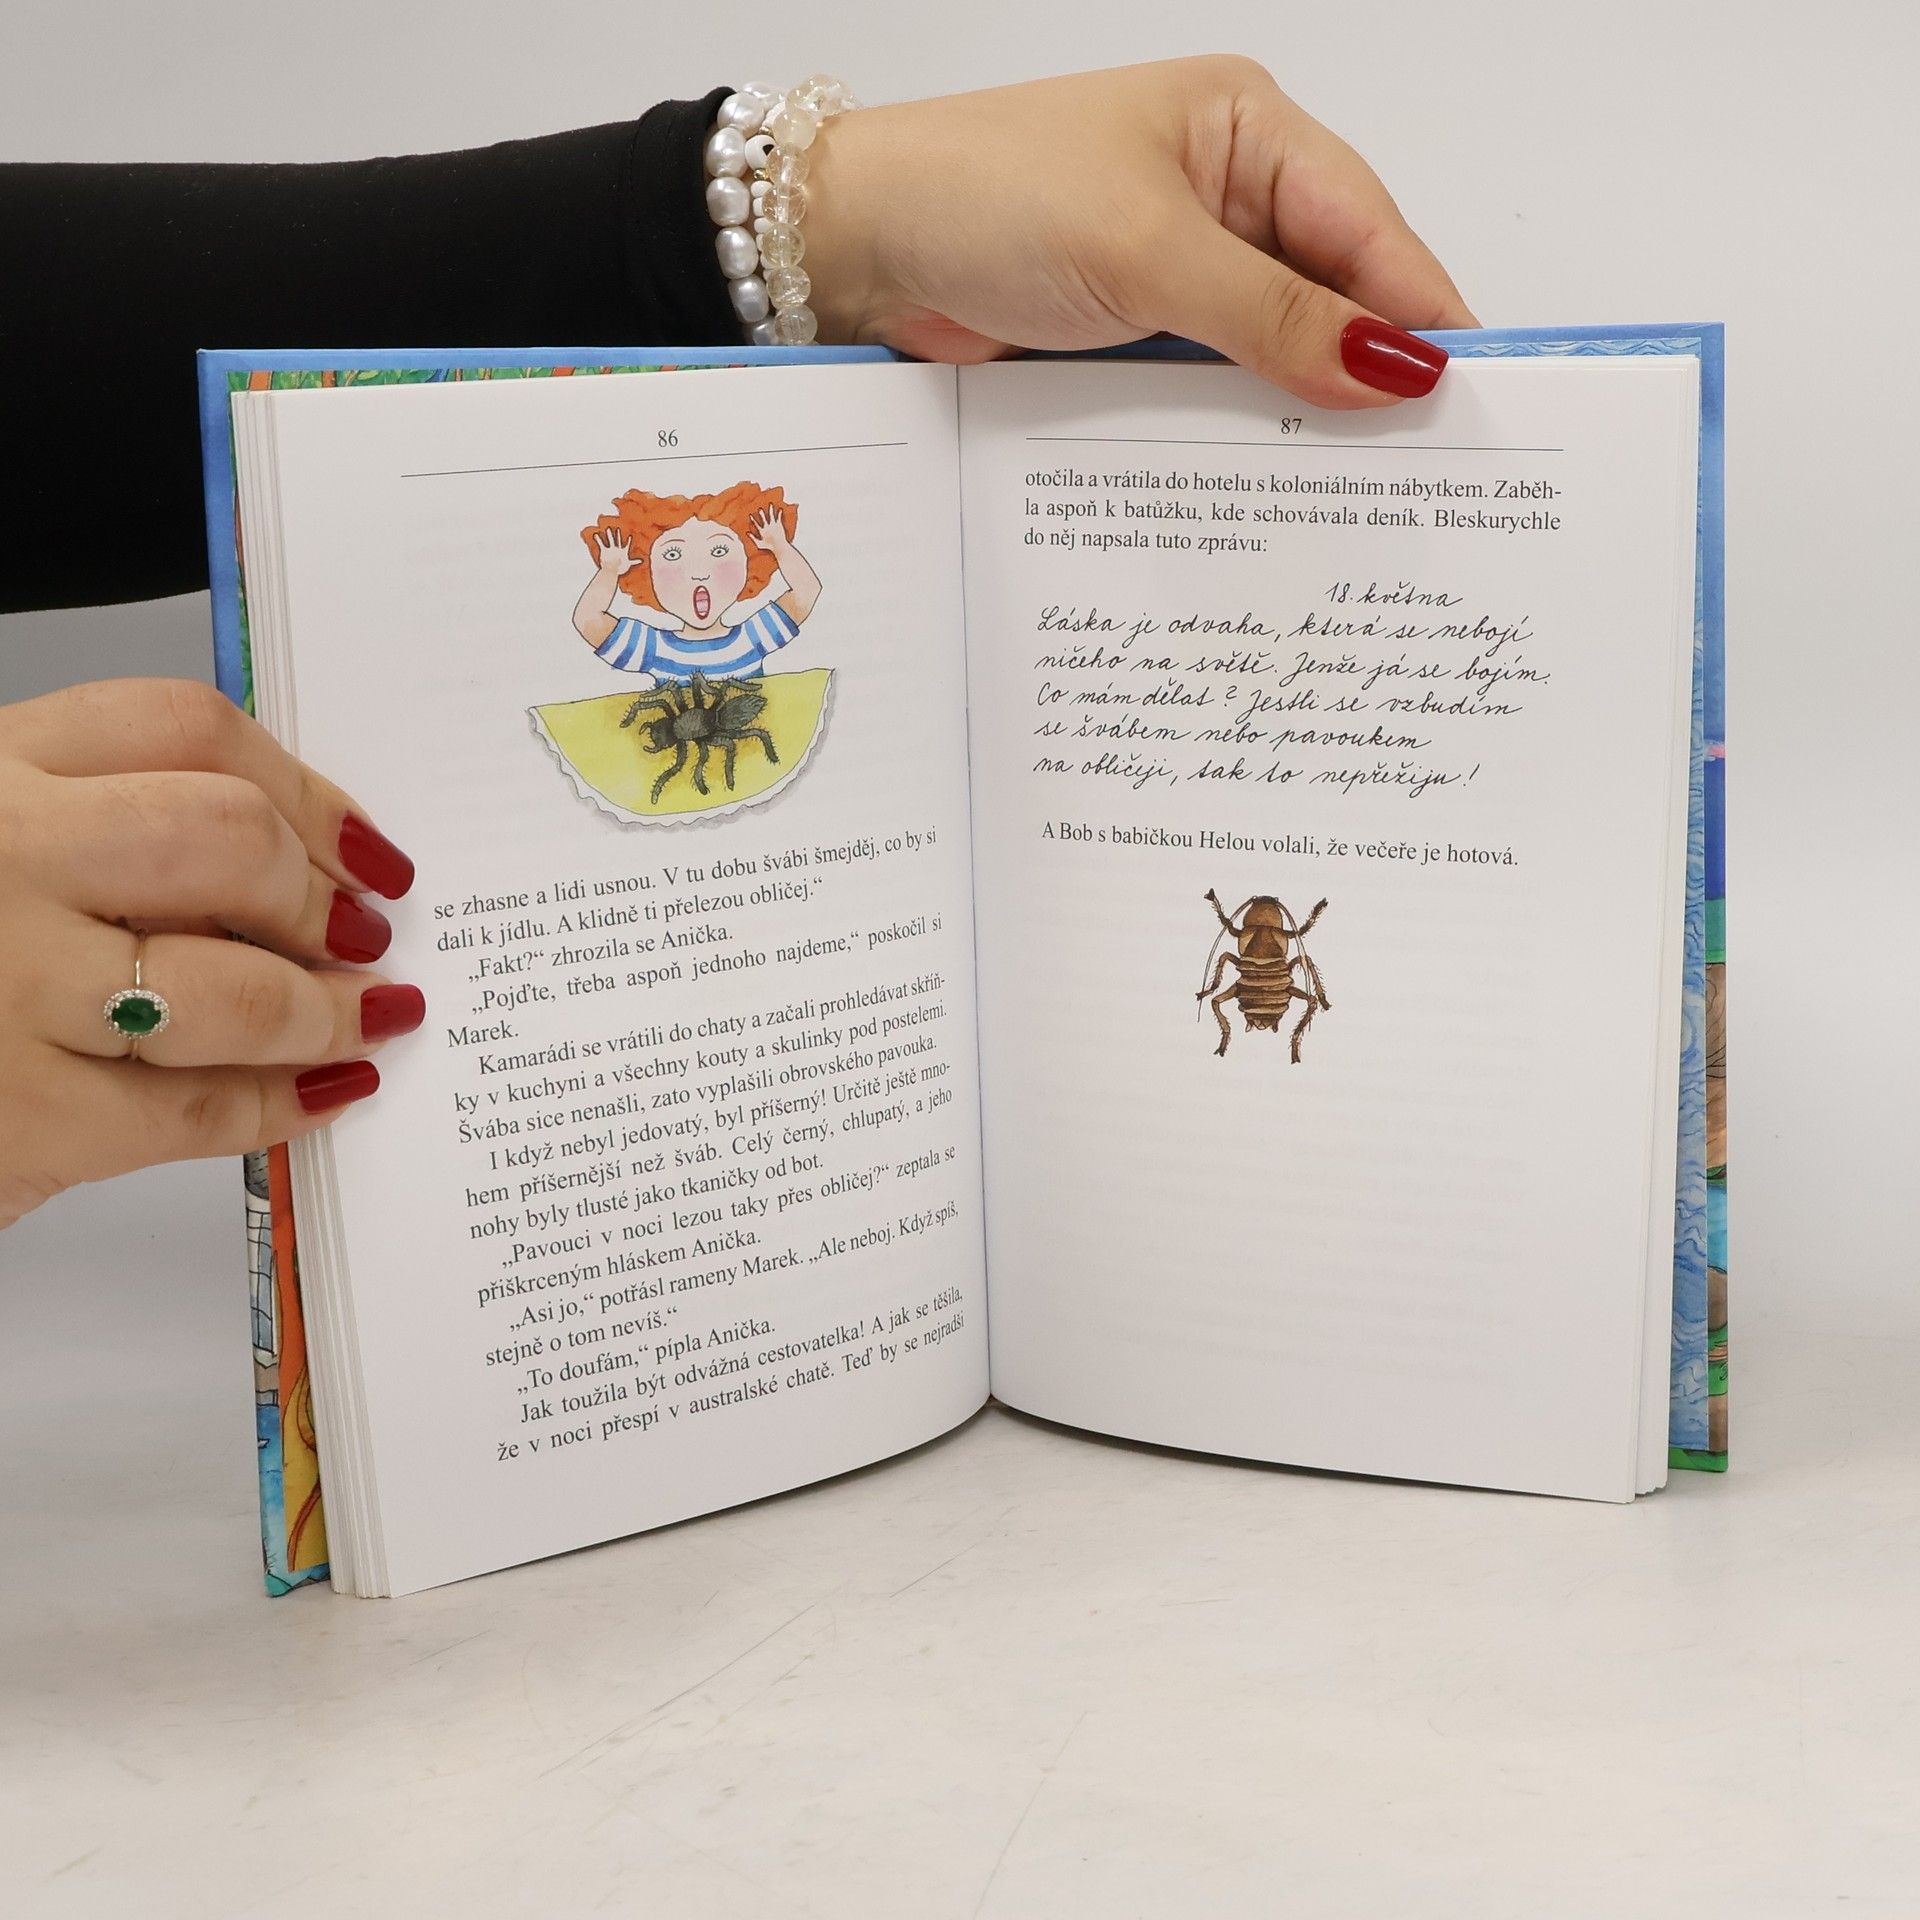 86
se zhasne a lidi usnou. V tu dobu švábi šmejděj, co by si
dali k jídlu. A klidně ti přelezou obličej.“
„Fakt?“ zhrozila se Anička.
„Pojďte, třeba aspoň jednoho najdeme,“ poskočil si
Marek.
Kamarádi se vrátili do chaty a začali prohledávat skříň-
ky v kuchyni a všechny kouty a skulinky pod postelemi.
Švába sice nenašli, zato vyplašili obrovského pavouka.
I když nebyl jedovatý, byl příšerný! Určitě ještě mno-
hem příšernější než šváb. Celý černý, chlupatý, a jeho
nohy byly tlusté jako tkaničky od bot.
„Pavouci v noci lezou taky přes obličej?“ zeptala se
přiškrceným hláskem Anička.
„Asi jo,“ potřásl rameny Marek. „Ale neboj. Když spíš,
stejně o tom nevíš.“
„To doufám,“ pípla Anička.
Jak toužila být odvážná cestovatelka! A jak se těšila,
že v noci přespí v australské chatě. Teď by se nejradši
87
otočila a vrátila do hotelu s koloniálním nábytkem. Zaběh-
la aspoň k batůžku, kde schovávala deník. Bleskurychle
do něj napsala tuto zprávu:
18. května
Láska je odvaha, která se nebojí
ničeho na světě. Jenže já se bojím.
Co mám dělat? Jestli se vzbudím
se švábem nebo pavoukem
na obličeji, tak to nepřežiju!
A Bob s babičkou Helou volali, že večeře je hotová.